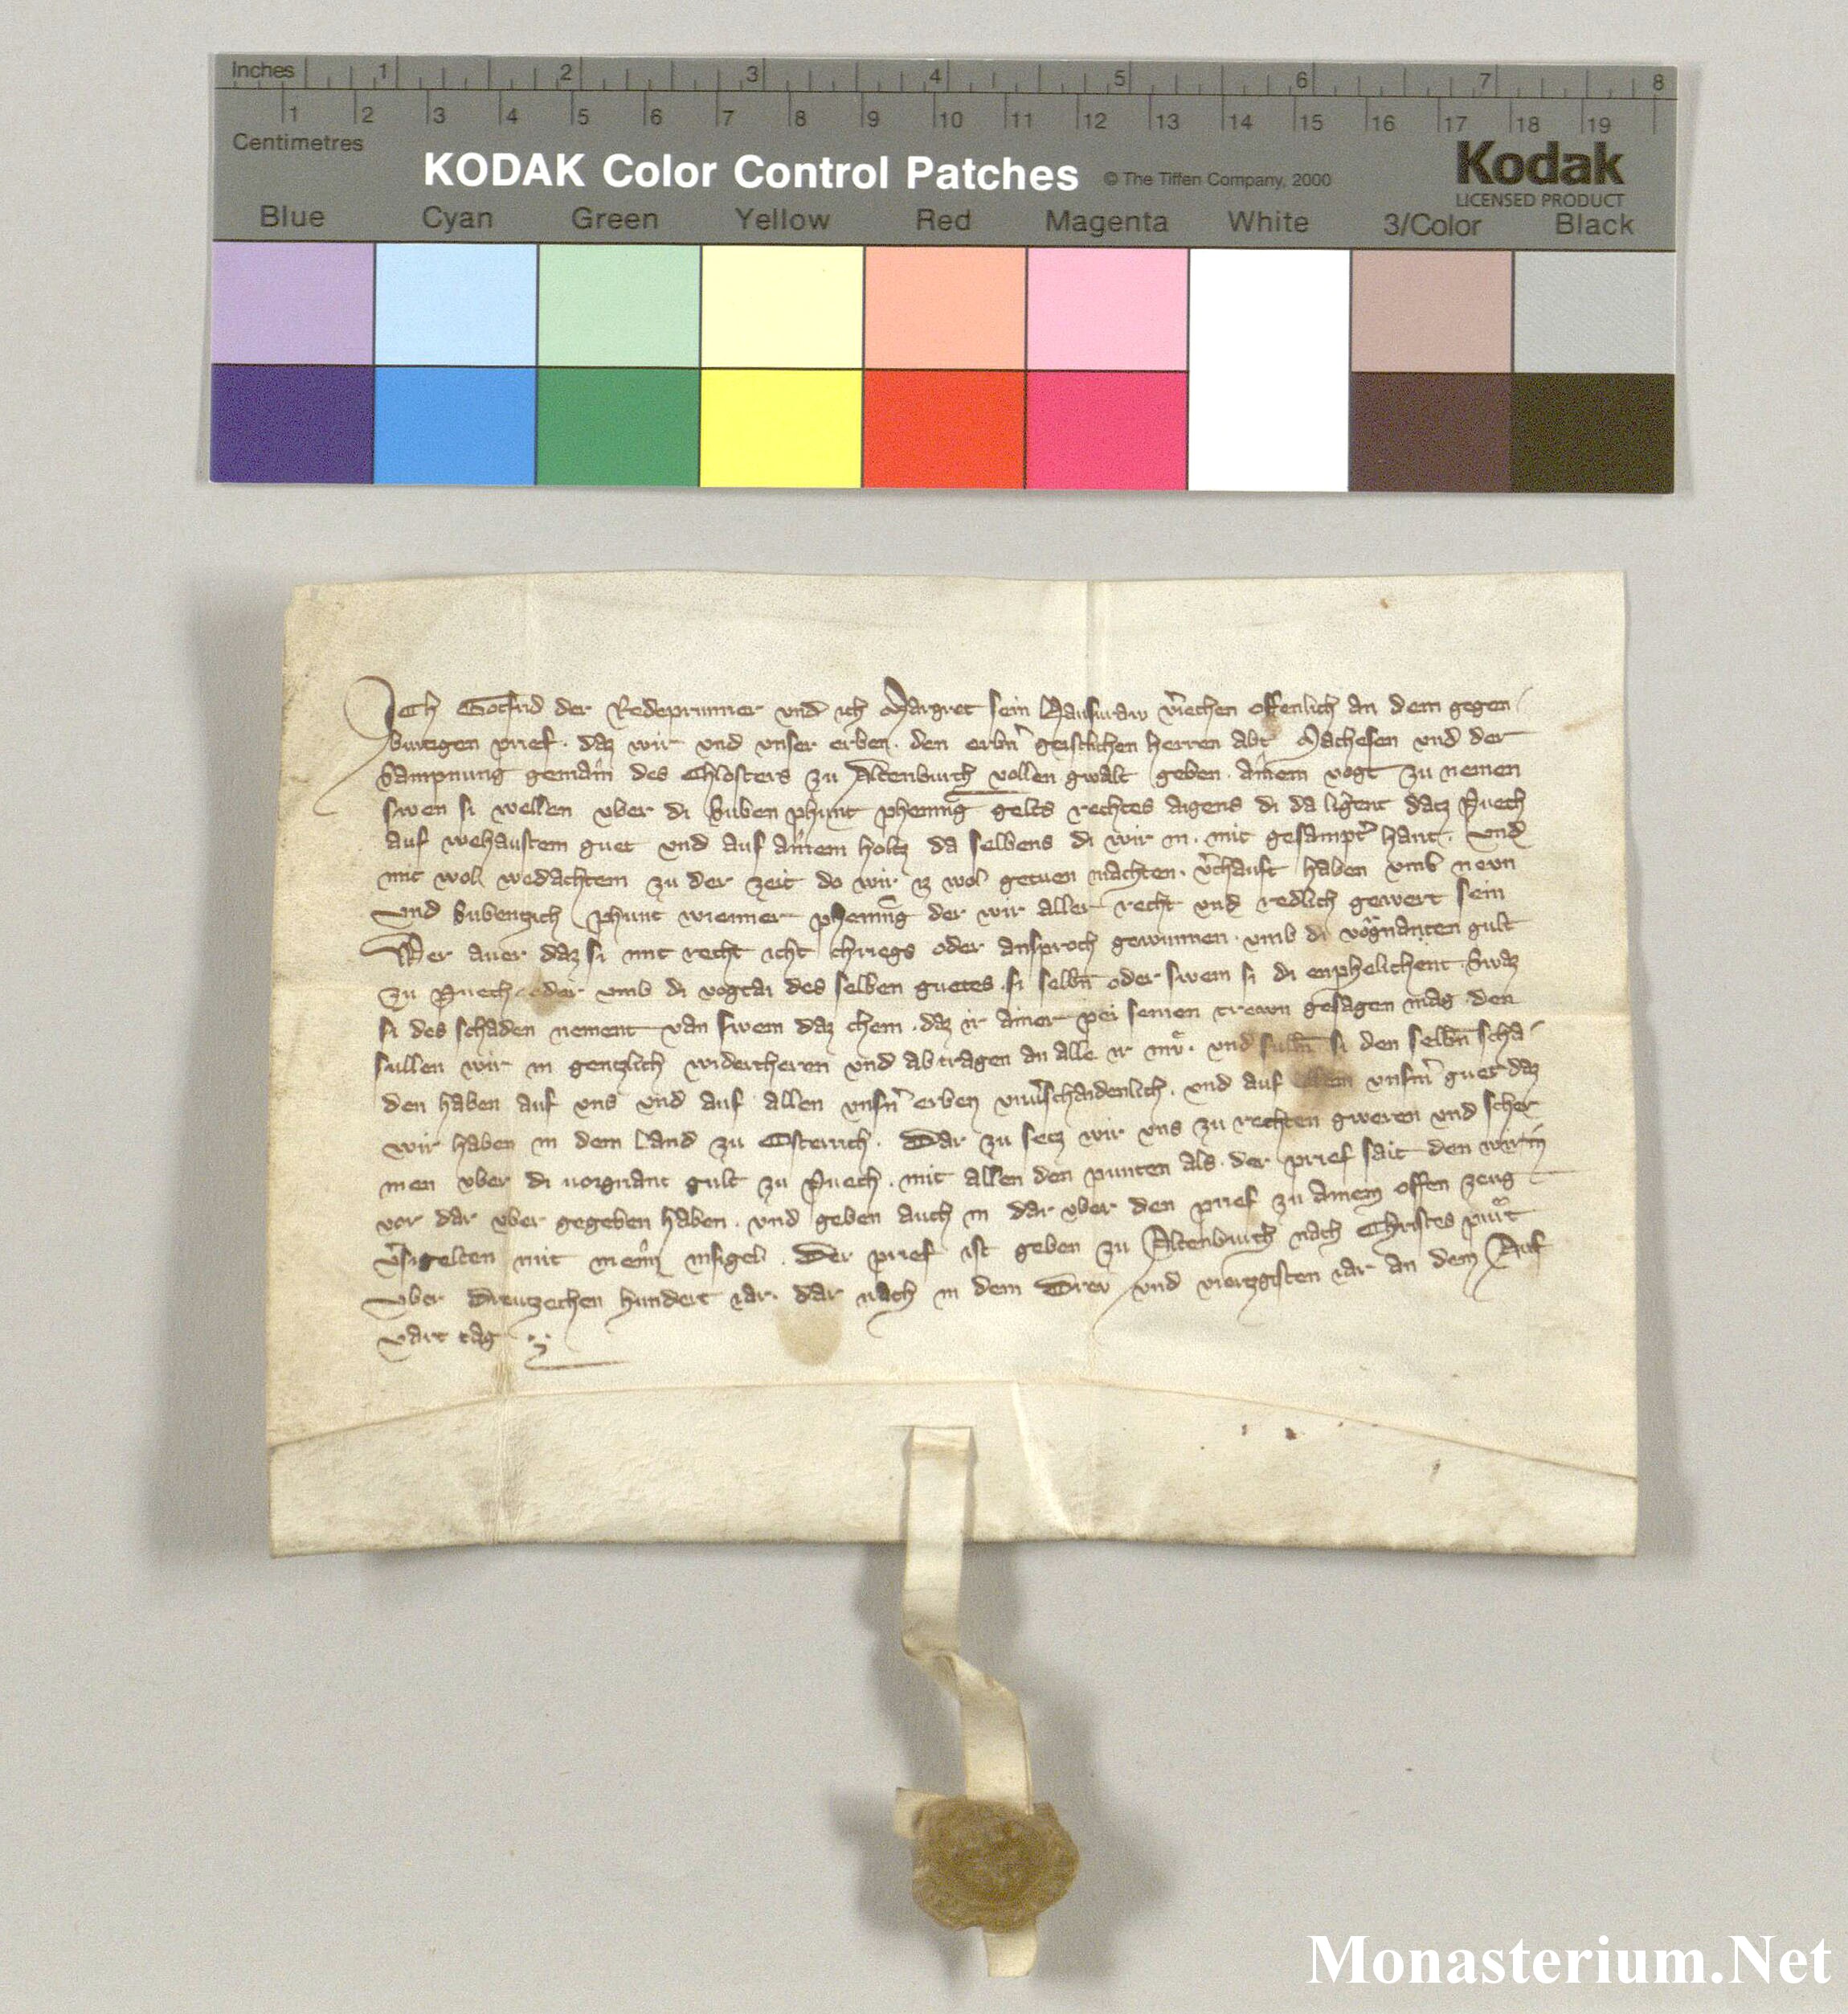 Inches 1 2 3 4 5 6 7 8
1 2 3 4 5 6 7 8 9 10 11 12 13 14 15 16 17 18 19
Centimetres
KODAK Color Control Patches © The Tiffen Company, 2000 Kodak
LICENSED PRODUCT
Blue Cyan Green Yellow Red Magenta White 3/Color Black
Ich Gotfrid der Redeprunner vnd ich Margret sein Hausvraw v̓iechen offenlich an dem gegen
burtigen prief · daz wir vnd vnser erben · den erbn̓ geistlichen herren abt Machesen vnd der
Sampnung gemain des Chlosters zu Altenburch vollen gwalt geben · ainem vogt zu nemen
swen si wellen vber di siben phunt phening gelts rechtes aigens di da ligent datz Puech
auf wehaustem guet vnd auf ainem holtz da selbens di wir in · mit gesampt̓ hant · vnd
mit wol wedachtem zu der zeit do wir iz wol getuen machten · v̓chauft haben vmb nevn
vnd Subentzich phunt wienner phening der wir aller recht vnd redlich gewert sein
Wer auer daz si mit recht icht chriegs oder ansproch gewunnen · vmb di vorgnanten gult
zu Puech · oder vmb di vogtai des selben guetes · si selbn̄ oder swem si di enphelichent · Swaz
si des schaden nement van swem daz chem · daz ir ainer pei seinen trewn gesagen mag · den
sullen wir in gentzlich widercheren vnd abtragen an alle ir mue · vnd sulln̄ si den selbn̄ scha
den haben auf vns vnd auf allen vnsn̓ erben vnu̓schaidenlich · vnd auf allem vnsm̓ guet daz
wir haben in dem Land zu Osterrich · Dar zu setz wir vns zu rechten gweren vnd scher
men vber di uorgnant gult zu Puech · mit allen den punten als · der prief sait den wir in
vor dar vber gegeben haben · vnd geben auch in dar vber den prief zu ainem offen zeug
v̓sigelten mit meim insigel · Der prief ist geben zu Altenburch nach Christes puͦrt
vber Dreutzechen hundert iar · dar nach in dem Drev vnd viertzgisten iar an dem Auf
vart tag
Monasterium.Net